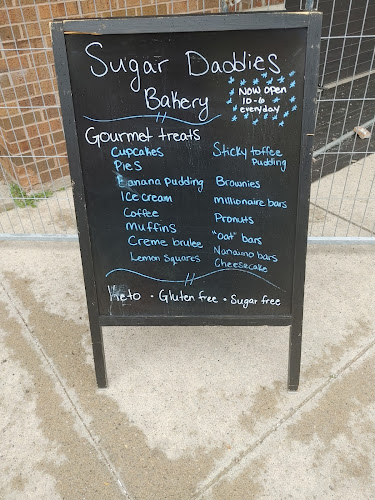 Sugar Daddies
Bakery
Now open
10-6
everyday
Gourmet treats
Cupcakes
Pies
Banana pudding
Ice cream
Coffee
Muffins
Creme brulee
Lemon Squares
Sticky toffee
Pudding
Brownies
Millionaire bars
Pronuts
"Oat" bars
Nanaimo bars
Cheesecake
Keto • Gluten free • Sugar free